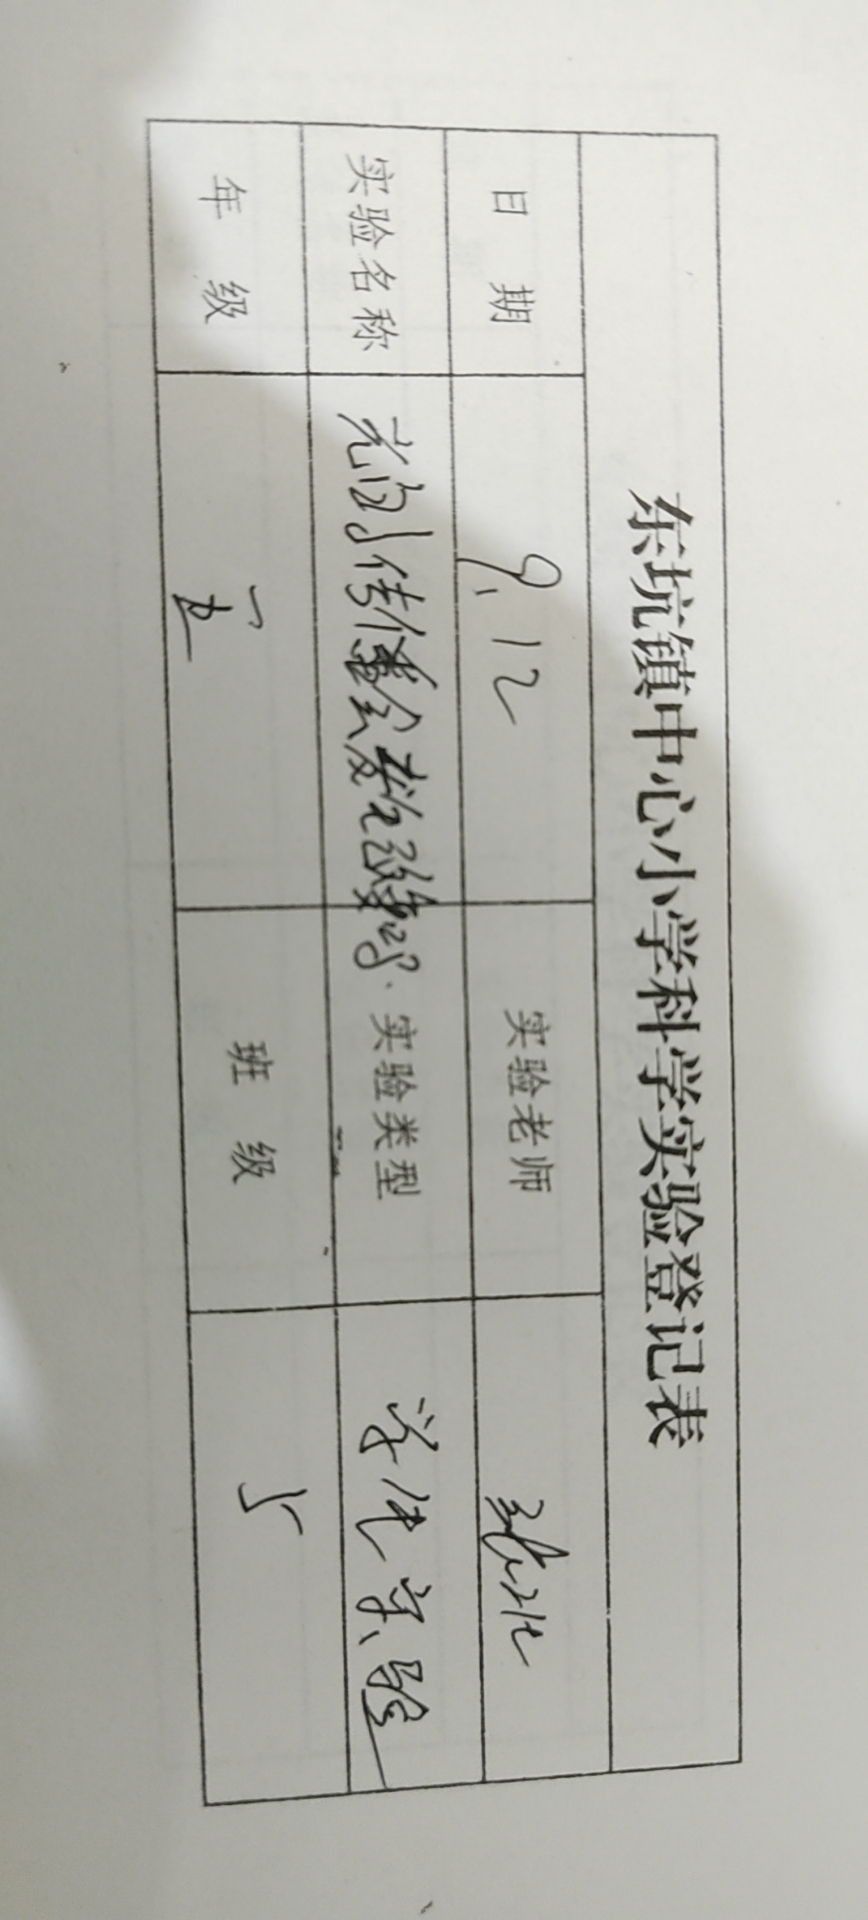 东坑镇中心小学科学实验登记表
日 期 9.12 实验老师
实验名称 光的传播会发生改变吗. 实验类型 学生实验
年 级 五 班 级 5